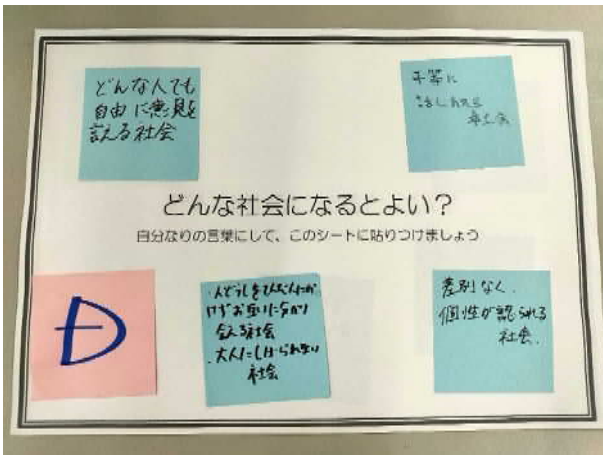 どんな人でも
自由に意見を
言える社会
平等に
話し合える
社会
どんな社会になるとよい？
自分なりの言葉にして、このシートに貼りつけましょう
D
お互いに分かり
合える社会
・大人にしばられない
社会
差別なく、
個性が認められる
社会.